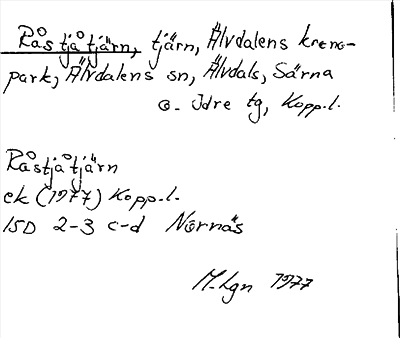 Råstjåtjärn, tjärn, Älvdalens krono-
park, Älvdalens sn, Älvdals, Särna
o. Idre tg, Kopp.l.
Råstjåtjärn
ek (1977) Kopp.l.
15D 2-3 c-d Nornäs
M.Lgn 1977